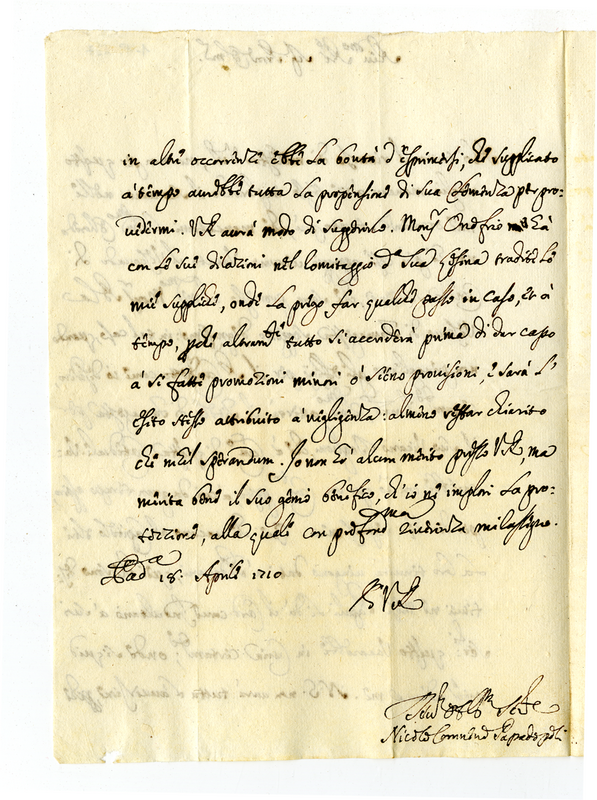 in altre occorrenze ebbe la bontà d'esprimersi, che supplicato
à tempo aurebbe tutta la propensione di sua Clemenza per pro-
uedermi. VR aurà modo di suggerirlo. Mons.r Onofrio mi hà
con le sue dilazioni nel tradite le
mie supplice, onde la prego far qualche passo in caso, et à
tempo, altram.te tutto si accenderà prima di dar caso
à si fatte promozioni minori ò sieno provisioni, e sarà l'
esito stesso attribuito à nigligenza: almeno restar chiarito
che nihil sperandum. Io non hò alcun merito presso VR ma
merita bene il suo genio benefico, ch'io ne implori la pro-
tezione, alla quale con profond.ma riverenza mi rassegno.
Pad.a 18. Aprile 1710
VR
Nicolò Comneno Papadopoli